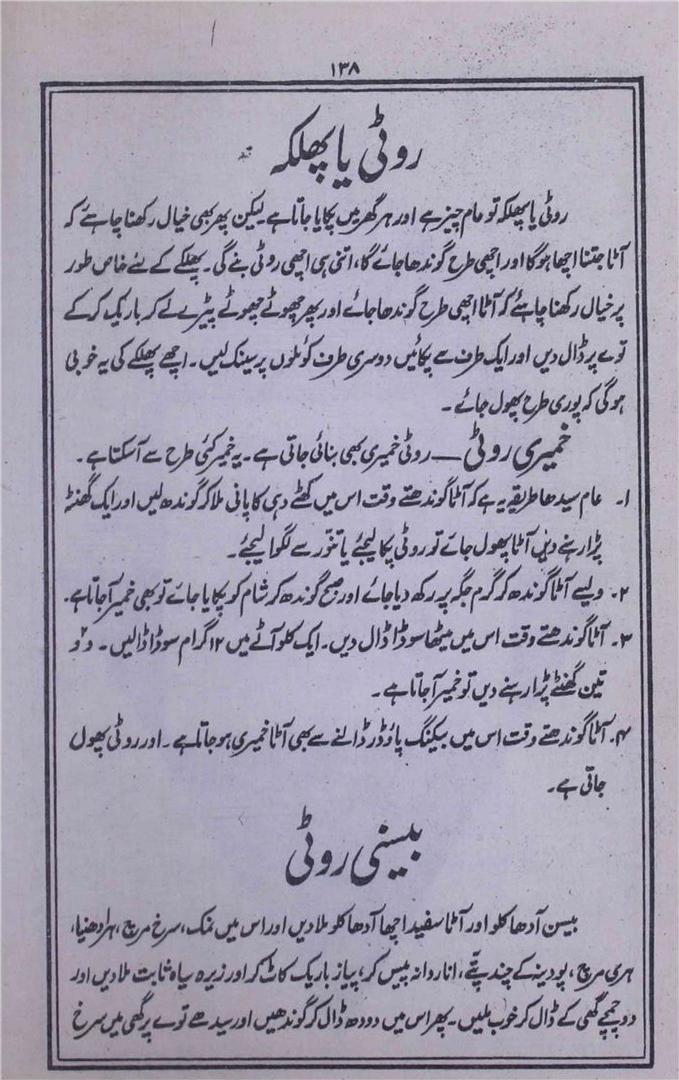 ۱۳۸
روٹی یا پھلکہ
روٹی یا پھلکہ تو عام چیز ہے اور ہر گھر میں پکایا جاتا ہے لیکن پھر بھی خیال رکھنا چاہئے کہ
آٹا جتنا اچھا ہوگا اور اچھی طرح گوندھا جائے گا، اتنی ہی اچھی روٹی بنے گی۔ پھلکے کے لئے خاص طور
پر خیال رکھنا چاہئے کہ آٹا اچھی طرح گوندھا جائے اور پھر چھوٹے چھوٹے پیڑے لے کر باریک کر کے
توے پر ڈال دیں اور ایک طرف سے پکائیں دوسری طرف کوئلوں پر سینک لیں۔ اچھے پھلکے کی یہ خوبی
ہوگی کہ پوری طرح پھول جائے۔
خمیری روٹی — روٹی خمیری بھی بنائی جاتی ہے۔ یہ خمیر کئی طرح سے آسکتا ہے۔
۱۔ عام سیدھا طریقہ یہ ہے کہ آٹا گوندھتے وقت اس میں کھٹے دہی کا پانی ملا کر گوندھ لیں اور ایک گھنٹہ
پڑا رہنے دیں آٹا پھول جائے تو روٹی پکا لیجئے یا تنور سے لگوا لیجئے۔
۲۔ ویسے آٹا گوندھ کر گرم جگہ پر رکھ دیا جائے اور صبح گوندھ کر شام کو پکایا جائے تو بھی خمیر آجاتا ہے۔
۳۔ آٹا گوندھتے وقت اس میں میٹھا سوڈا ڈال دیں۔ ایک کلو آٹے میں ۱۲ گرام سوڈا ڈالیں۔ دو
تین گھنٹے پڑا رہنے دیں تو خمیر آجاتا ہے۔
۴۔ آٹا گوندھتے وقت اس میں بیکنگ پاؤڈر ڈالنے سے بھی آٹا خمیری ہوجاتا ہے۔ اور روٹی پھول
جاتی ہے۔
بیسنی روٹی
بیسن آدھا کلو اور آٹا سفید اچھا آدھا کلو ملا دیں اور اس میں نمک، سرخ مرچ، ہرا دھنیا،
ہری مرچ، پودینہ کے چند پتّے، انار دانہ پیس کر، پیاز باریک کاٹ کر اور زیرہ سیاہ ثابت ملا دیں اور
دو چمچے گھی کے ڈال کر خوب ملیں۔ پھر اس میں دودھ ڈال کر گوندھیں اور سیدھے توے پر گھی میں سرخ